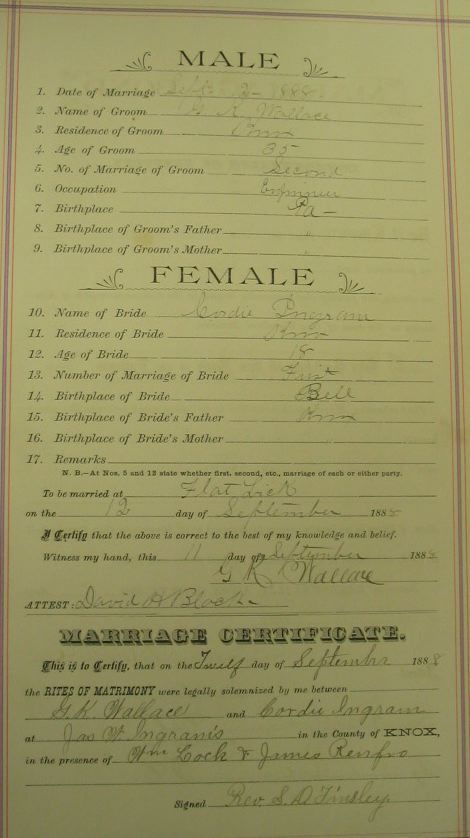 MALE
1. Date of Marriage Sept 12 - 1888
2. Name of Groom G. K. Wallace
3. Residence of Groom Knox
4. Age of Groom 35
5. No. of Marriage of Groom Second
6. Occupation
7. Birthplace Pa -
8. Birthplace of Groom's Father "
9. Birthplace of Groom's Mother "
FEMALE
10. Name of Bride Cordie Ingram
11. Residence of Bride Knox
12. Age of Bride 18
13. Number of Marriage of Bride First
14. Birthplace of Bride Bell
15. Birthplace of Bride's Father Knox
16. Birthplace of Bride's Mother
17. Remarks
N. B.—At Nos. 5 and 12 state whether first, second, etc., marriage of each or either party.
To be married at Flat Lick
on the 12 day of September 1888
I Certify that the above is correct to the best of my knowledge and belief.
Witness my hand, this 11 day of September 1888
G K Wallace
ATTEST: David H Black
MARRIAGE CERTIFICATE.
This is to Certify, that on the Twelf day of September 1888
the RITES OF MATRIMONY were legally solemnized by me between
G. K. Wallace and Cordie Ingram
at Jas W. Ingram's in the County of KNOX,
in the presence of Wm Lock & James Renfro
Signed Rev. S. D. Tinsley